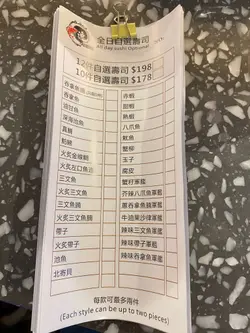 全日自選壽司
All day sushi Optional
12件自選壽司 $198
10件自選壽司 $178
吞拿魚
油甘魚
深海池魚
真鯛
魷鰭
火炙金線鯛
火炙左口魚邊
三文魚
火炙三文魚
三文魚腩
火炙三文魚腩
帶子
火炙帶子
池魚
北寄貝
赤蝦
甜蝦
熟蝦
八爪魚
魷魚
蟹柳
玉子
腐皮
蟹籽軍艦
芥辣八爪魚軍艦
蔥吞拿魚蓉軍艦
牛油果沙律軍艦
辣味三文魚軍艦
辣味帶子軍艦
辣味吞拿魚軍艦
每款可最多兩件
(Each style can be up to two pieces)